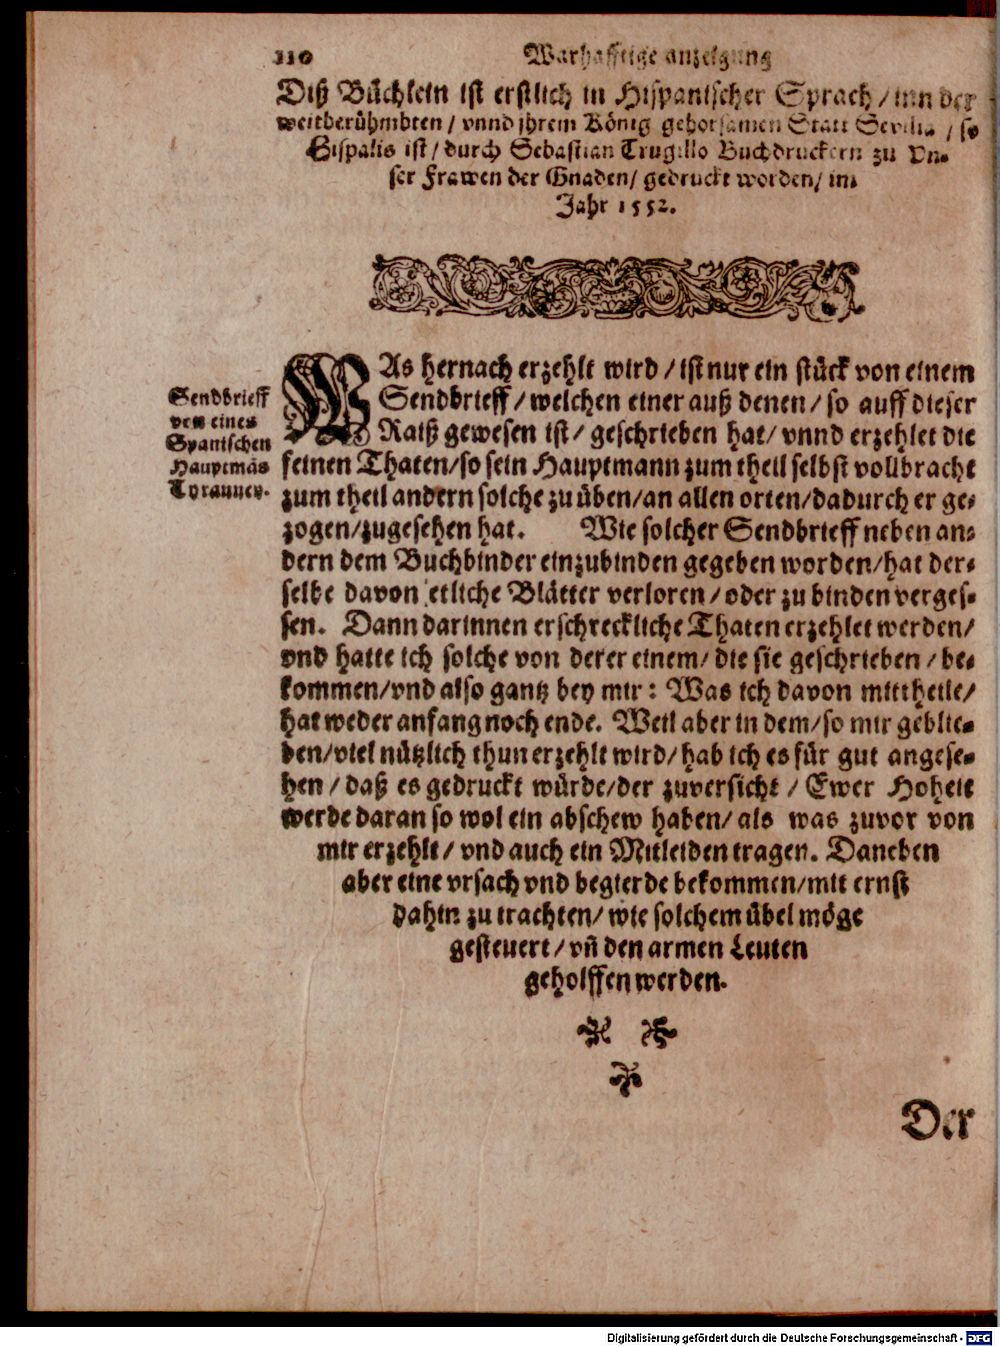 110 Warhafftige anzeigung
Diß Büchlein ist erstlich in Hispanischer Sprach / inn der
weitberühmbten / vnnd jhrem König gehorsamen Statt Sevilia / so
Hispalis ist / durch Sebastian Trugillo Buchdruckern zu Vn-
ser Frawen der Gnaden / gedruckt worden / im
Jahr 1552.
Sendbrieff
von eines
Spanischen
Hauptmās
Tyranney.
WAs hernach erzehlt wird / ist nur ein stück von einem
Sendbrieff / welchen einer auß denen / so auff dieser
Raiß gewesen ist / geschrieben hat / vnnd erzehlet die
feinen Thaten / so sein Hauptmann zum theil selbst vollbracht
zum theil andern solche zu üben / an allen orten / dadurch er ge-
zogen / zugesehen hat. Wie solcher Sendbrieff neben an-
dern dem Buchbinder einzubinden gegeben worden / hat der-
selbe davon etliche Blätter verloren / oder zu binden verges-
sen. Dann darinnen erschreckliche Thaten erzehlet werden /
vnd hatte ich solche von derer einem / die sie geschrieben / be-
kommen / vnd also gantz bey mir : Was ich davon mittheile /
hat weder anfang noch ende. Weil aber in dem / so mir geblie-
ben / viel nützlich thun erzehlt wird / hab ich es für gut angese-
hen / daß es gedruckt würde / der zuversicht / Ewer Hoheit
werde daran so wol ein abschew haben / als was zuvor von
mir erzehlt / vnd auch ein Mitleiden tragen. Daneben
aber eine vrsach vnd begierde bekommen / mit ernst
dahin zu trachten / wie solchem übel möge
gesteuert / vñ den armen Leuten
geholffen werden.
Der
Digitalisierung gefördert durch die Deutsche Forschungsgemeinschaft - DFG